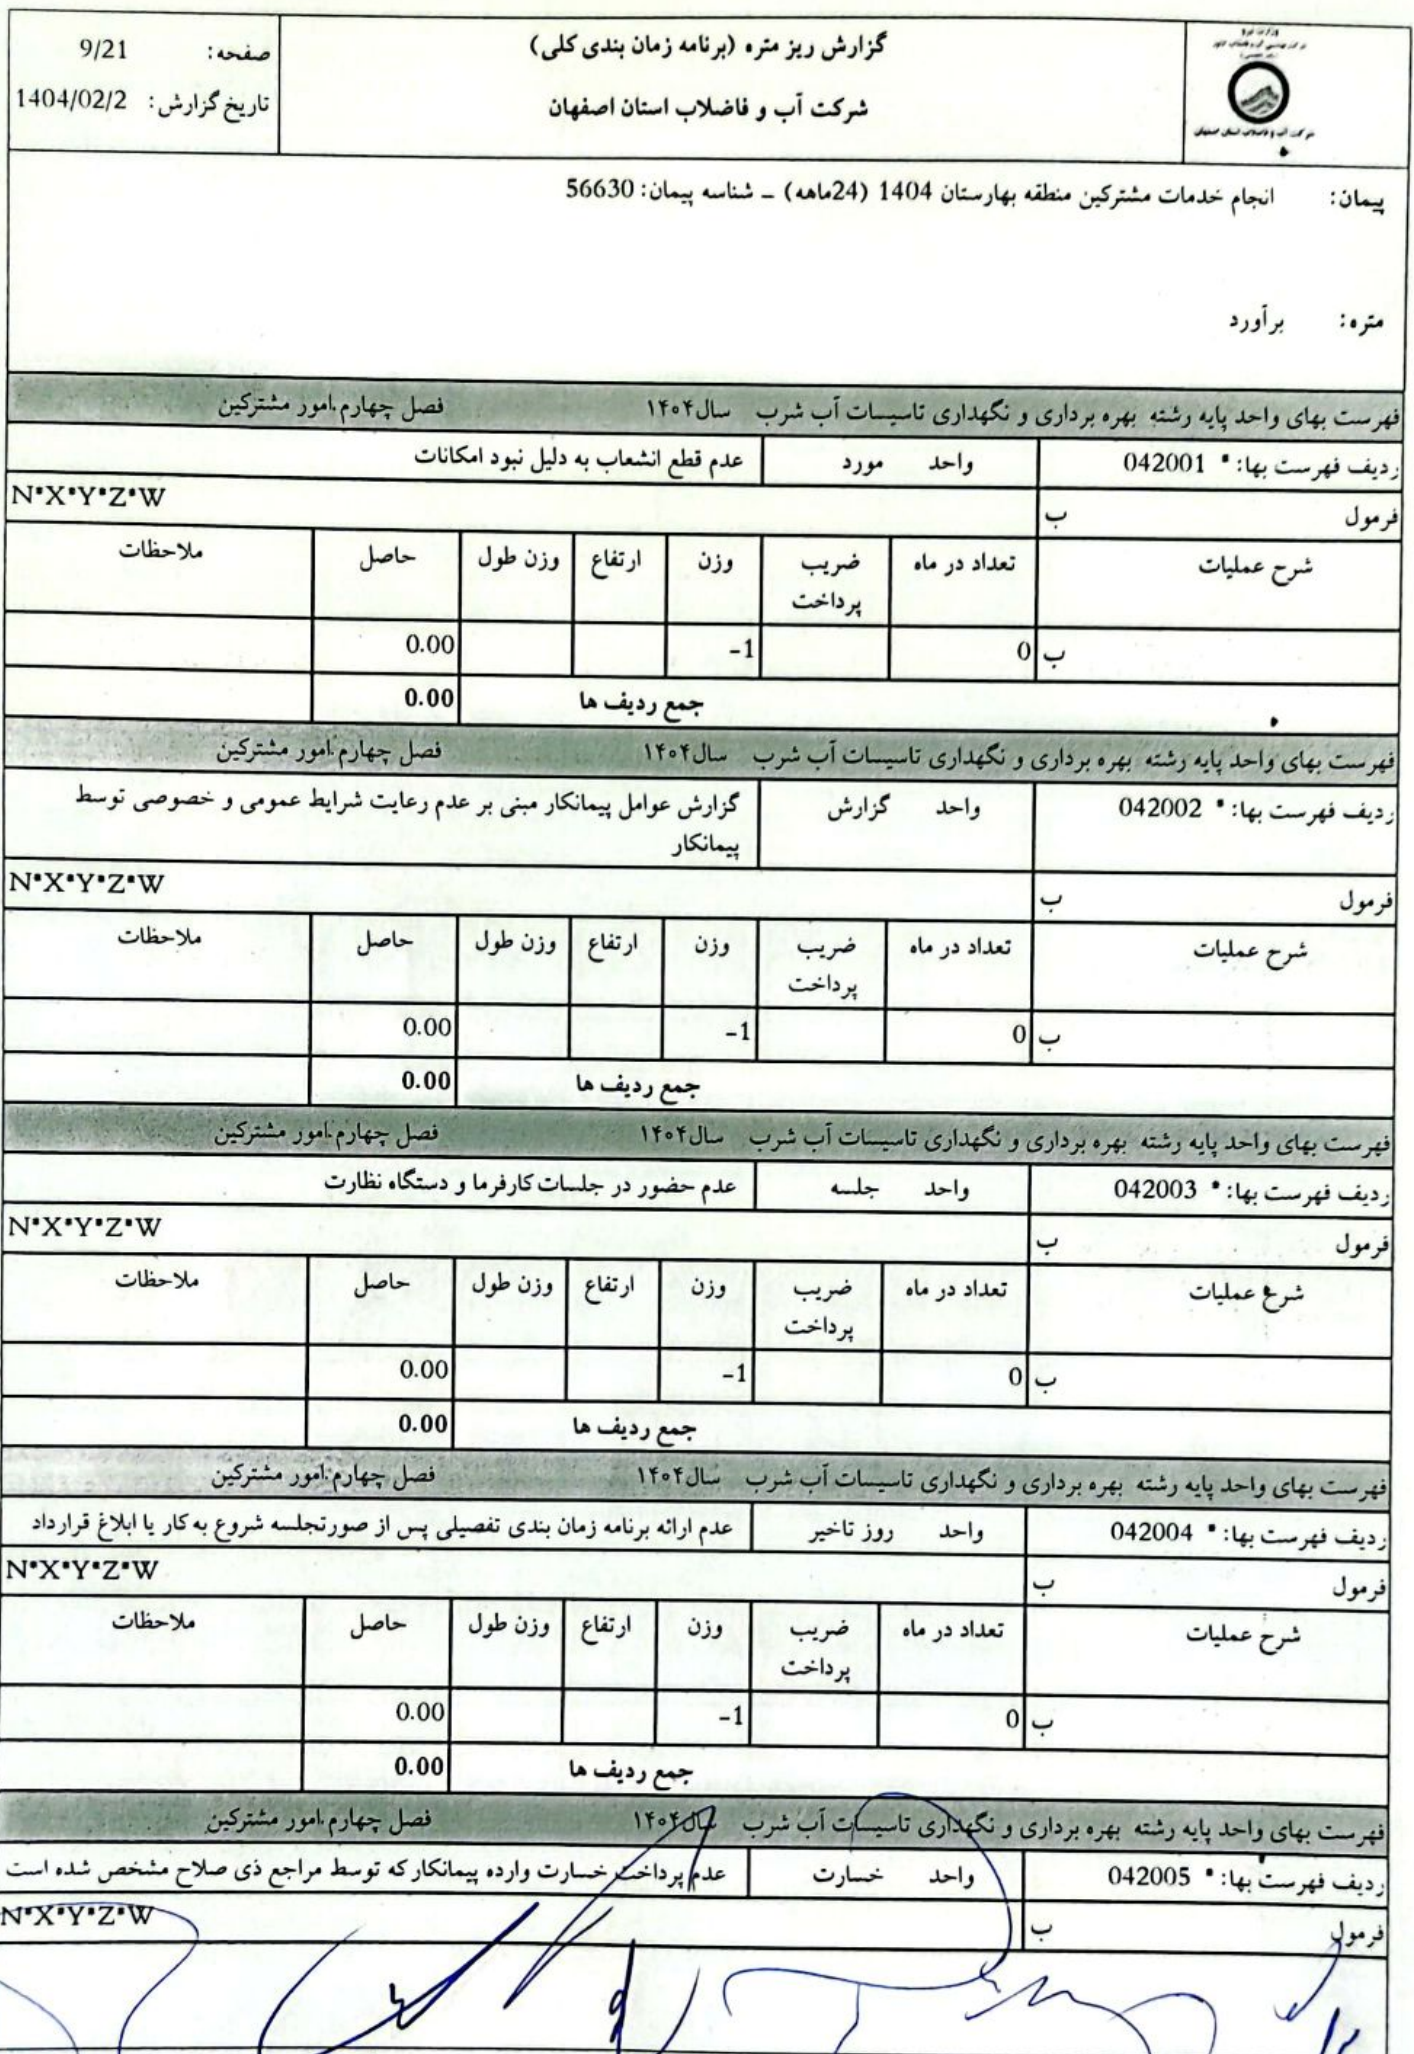 گزارش ریز متره (برنامه زمان بندی کلی)
شرکت آب و فاضلاب استان اصفهان
صفحه: 9/21
تاریخ گزارش: 1404/02/2
وزارت نیرو
شرکت آب و فاضلاب استان اصفهان
پیمان: انجام خدمات مشترکین منطقه بهارستان 1404 (24ماهه) - شناسه پیمان: 56630
متره: برآورد
فهرست بهای واحد پایه رشته بهره برداری و نگهداری تاسیسات آب شرب سال۱۴۰۴ فصل چهارم.امور مشترکین
ردیف فهرست بها: * 042001 واحد مورد عدم قطع انشعاب به دلیل نبود امکانات
فرمول ب N*X*Y*Z*W
شرح عملیات تعداد در ماه ضریب پرداخت وزن ارتفاع وزن طول حاصل ملاحظات
ب 0 -1 0.00
جمع ردیف ها 0.00
فهرست بهای واحد پایه رشته بهره برداری و نگهداری تاسیسات آب شرب سال۱۴۰۴ فصل چهارم.امور مشترکین
ردیف فهرست بها: * 042002 واحد گزارش گزارش عوامل پیمانکار مبنی بر عدم رعایت شرایط عمومی و خصوصی توسط
پیمانکار
فرمول ب N*X*Y*Z*W
شرح عملیات تعداد در ماه ضریب پرداخت وزن ارتفاع وزن طول حاصل ملاحظات
ب 0 -1 0.00
جمع ردیف ها 0.00
فهرست بهای واحد پایه رشته بهره برداری و نگهداری تاسیسات آب شرب سال۱۴۰۴ فصل چهارم.امور مشترکین
ردیف فهرست بها: * 042003 واحد جلسه عدم حضور در جلسات کارفرما و دستگاه نظارت
فرمول ب N*X*Y*Z*W
شرح عملیات تعداد در ماه ضریب پرداخت وزن ارتفاع وزن طول حاصل ملاحظات
ب 0 -1 0.00
جمع ردیف ها 0.00
فهرست بهای واحد پایه رشته بهره برداری و نگهداری تاسیسات آب شرب سال۱۴۰۴ فصل چهارم.امور مشترکین
ردیف فهرست بها: * 042004 واحد روز تاخیر عدم ارائه برنامه زمان بندی تفصیلی پس از صورتجلسه شروع به کار یا ابلاغ قرارداد
فرمول ب N*X*Y*Z*W
شرح عملیات تعداد در ماه ضریب پرداخت وزن ارتفاع وزن طول حاصل ملاحظات
ب 0 -1 0.00
جمع ردیف ها 0.00
فهرست بهای واحد پایه رشته بهره برداری و نگهداری تاسیسات آب شرب سال۱۴۰۴ فصل چهارم.امور مشترکین
ردیف فهرست بها: * 042005 واحد خسارت عدم پرداخت خسارت وارده پیمانکار که توسط مراجع ذی صلاح مشخص شده است
فرمول ب N*X*Y*Z*W